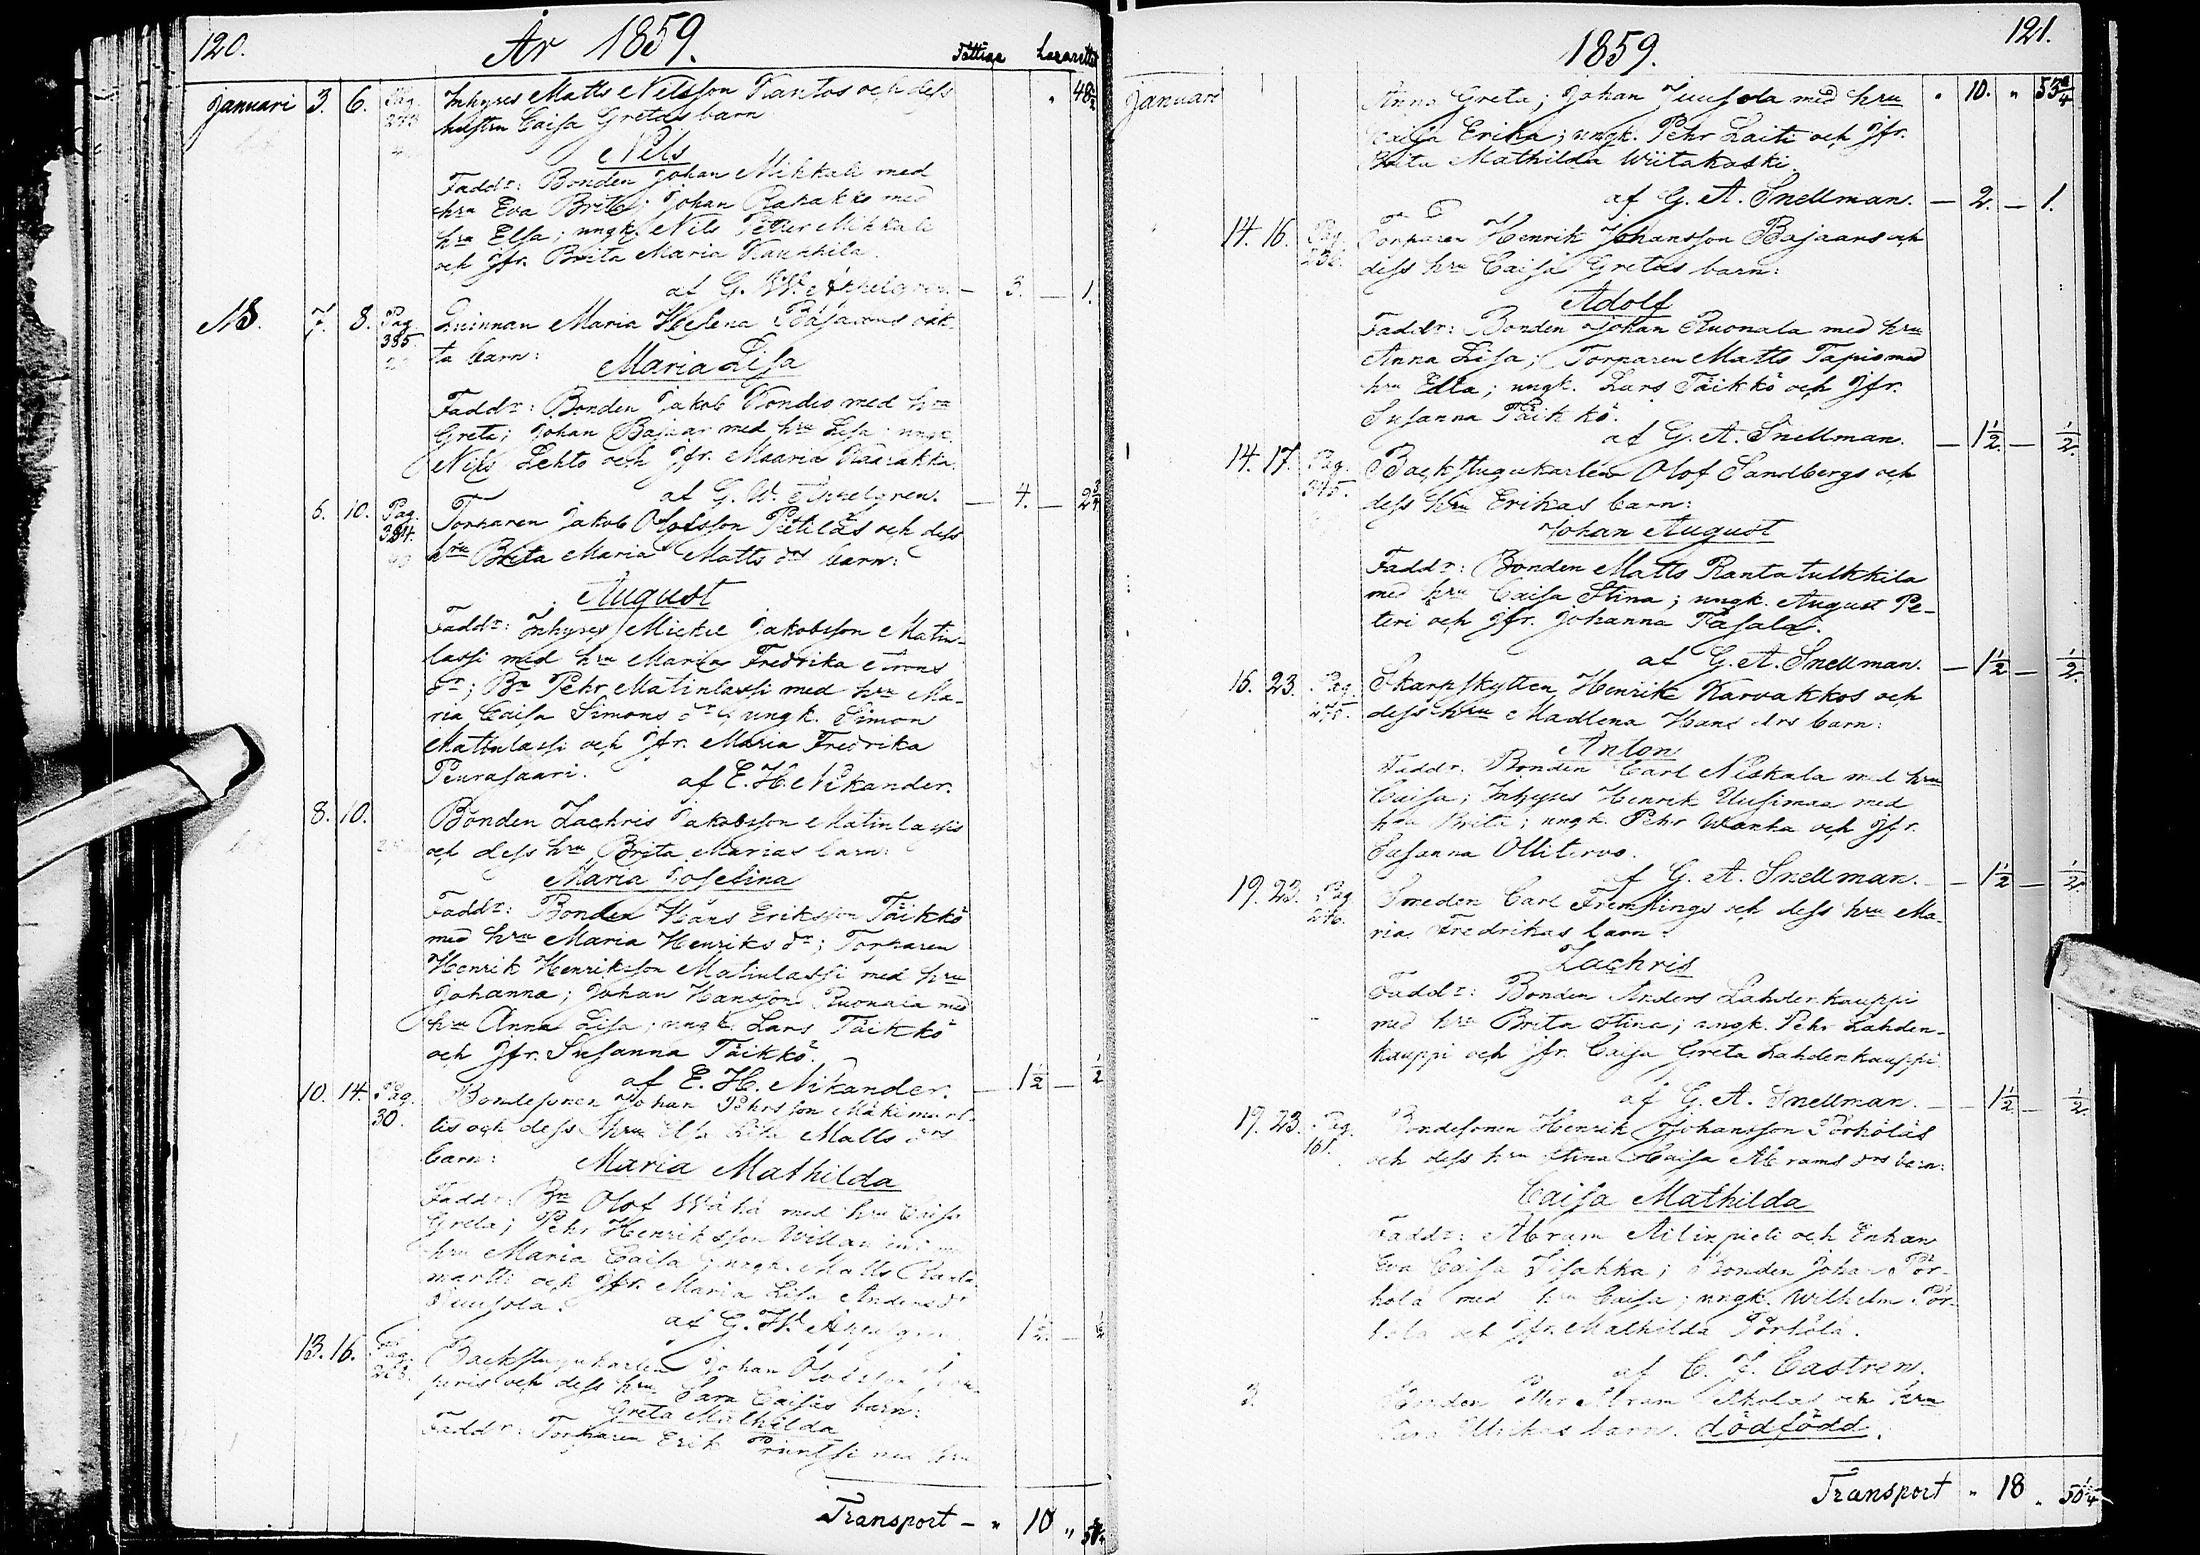 120. År 1859. Fattiga Lazarettet
Januari 3. 6. Pag. Inhyses Matts Nilsson Kantos och dess
hustru Caisa Gretas barn
Nils
Faddr: Bonden Johan Mikkali med
hru Eva Brita; Johan Rapakko med
hru Elsa; ungk. Nils Petter Mikkali
och Jfr. Brita Maria Kauppila.
af G. W. Appelgren. — 3. — 1.
NB. 7. 8. Pag. 335 Qvinnan Maria Helena Bajaans oäk-
ta barn:
Maria Lisa
Faddr: Bonden Jakob Kondio med hru
Greta; Johan Bajaar med hru Lisa; ungk.
Nils Lehto och Jfr. Maaria Raasakka.
af G. W. Appelgren. — 4. — 2 3/4
6. 10. Pag. 324. Torparen Jakob Olofsson Pietiläs och dess
hru Brita Maria Matts drs barn:
August
Faddr: Inhyses Mickel Jakobsson Matin-
lassi med hru Maria Fredrika Arons
dr; Bn Pehr Matinlassi med hru Ma-
ria Caisa Simons dr; ungk. Simon
Matinlassi och Jfr. Maria Fredrika
Peurasaari. af E. H. Nikander.
8. 10. Bonden Zachris Jakobsson Matinlassis
och dess hru Brita Marias barn:
Maria Josefina
Faddr: Bonden Hans Eriksson Täikkö
med hru Maria Henriks dr; Torparen
Henrik Henriksson Matinlassi med hru
Johanna; Johan Hansson Ruonala med
hru Anna Lisa; ungk. Lars Täikkö
och Jfr. Susanna Täikkö.
af E. H. Nikander. — 1 1/2 — 1/2
10. 14. Pag. 30. Bondesonen Johan Pehrsson Mäkimart-
tis och dess hru Lisa Matts drs
barn: Maria Mathilda
Faddr: Bn Olof Wähä med hru Caisa
Greta; Pehr Henriksson
hru Maria Caisa; ungk. Matts
martti och Jfr. Maria Lisa Anders dr
Juusola.
af G. W. Appelgren. 1 1/2 — 1/2
13. 16. Pag. Backstugukarlen Johan Olofsson
och dess hru Sara Caisas barn:
Greta Mathilda
Faddr: Torparen Erik med hru
Transport — " 10 "
1859. 121.
Januari Anna Greta; Johan Juusola med hru " 10. " 53 3/4
Caisa Erika; ungk. Pehr Laiti och Jfr.
Brita Mathilda Wiitakoski
af G. A. Snellman. — 2. — 1.
14. 16. Pag. Torparen Henrik Johansson Bajaans och
dess hru Caisa Gretas barn:
Adolf
Faddr: Bonden Johan Ruonala med hru
Anna Lisa; Torparen Matts Tapio med
hru Ella; ungk. Lars Täikkö och Jfr.
Susanna Täikkö.
af G. A. Snellman. — 1 1/2 — 1/2.
14. 17. Pag. 345. Backstugukarlen Olof Sandbergs och
dess hru Erikas barn:
Johan August
Faddr: Bonden Matts Rantatulkkila
med hru Caisa Stina; ungk. August Pe-
teri och Jfr. Johanna Kasala.
af G. A. Snellman. — 1 1/2 — 1/2.
16. 23. Pag. 275. Skarpskytten Henrik Karvakkos och
dess hru Madlena Hans drs barn:
Anton
Faddr. Bonden Carl Niskala med hru
Caisa; Inhyses Henrik Uusimaa med
hru Brita; ungk. Pehr Wanha och Jfr.
Susanna Ollitervo.
af G. A. Snellman. — 1 1/2 — 1/2
19. 23. Pag. 246. Smeden Carl Fremlings och dess hru Ma-
ria Fredrikas barn:
Zachris
Faddr: Bonden Anders Lahdenkauppi
med hru Brita Stina; ungk. Pehr Lahden-
kauppi och Jfr. Caisa Greta Lahdenkauppi
af G. A. Snellman. — 1 1/2 — 1/2.
19. 23. Pag. 161. Bondesonen Henrik Johansson Pörhöläs
och dess hru Stina Caisa Abrams drs barn:
Caisa Mathilda
Faddr: Abram Ailinpieti och Enkan
Eva Caisa Iisakka; Bonden Johan Pör-
hölä med hru Caisa; ungk. Wilhelm Pör-
hölä och Jfr. Mathilda Pörhölä.
af C. J. Castren.
3. Bonden Petter Abram och hru
Ulrikas barn. dödfödd.
Transport " 18 " 50 1/4